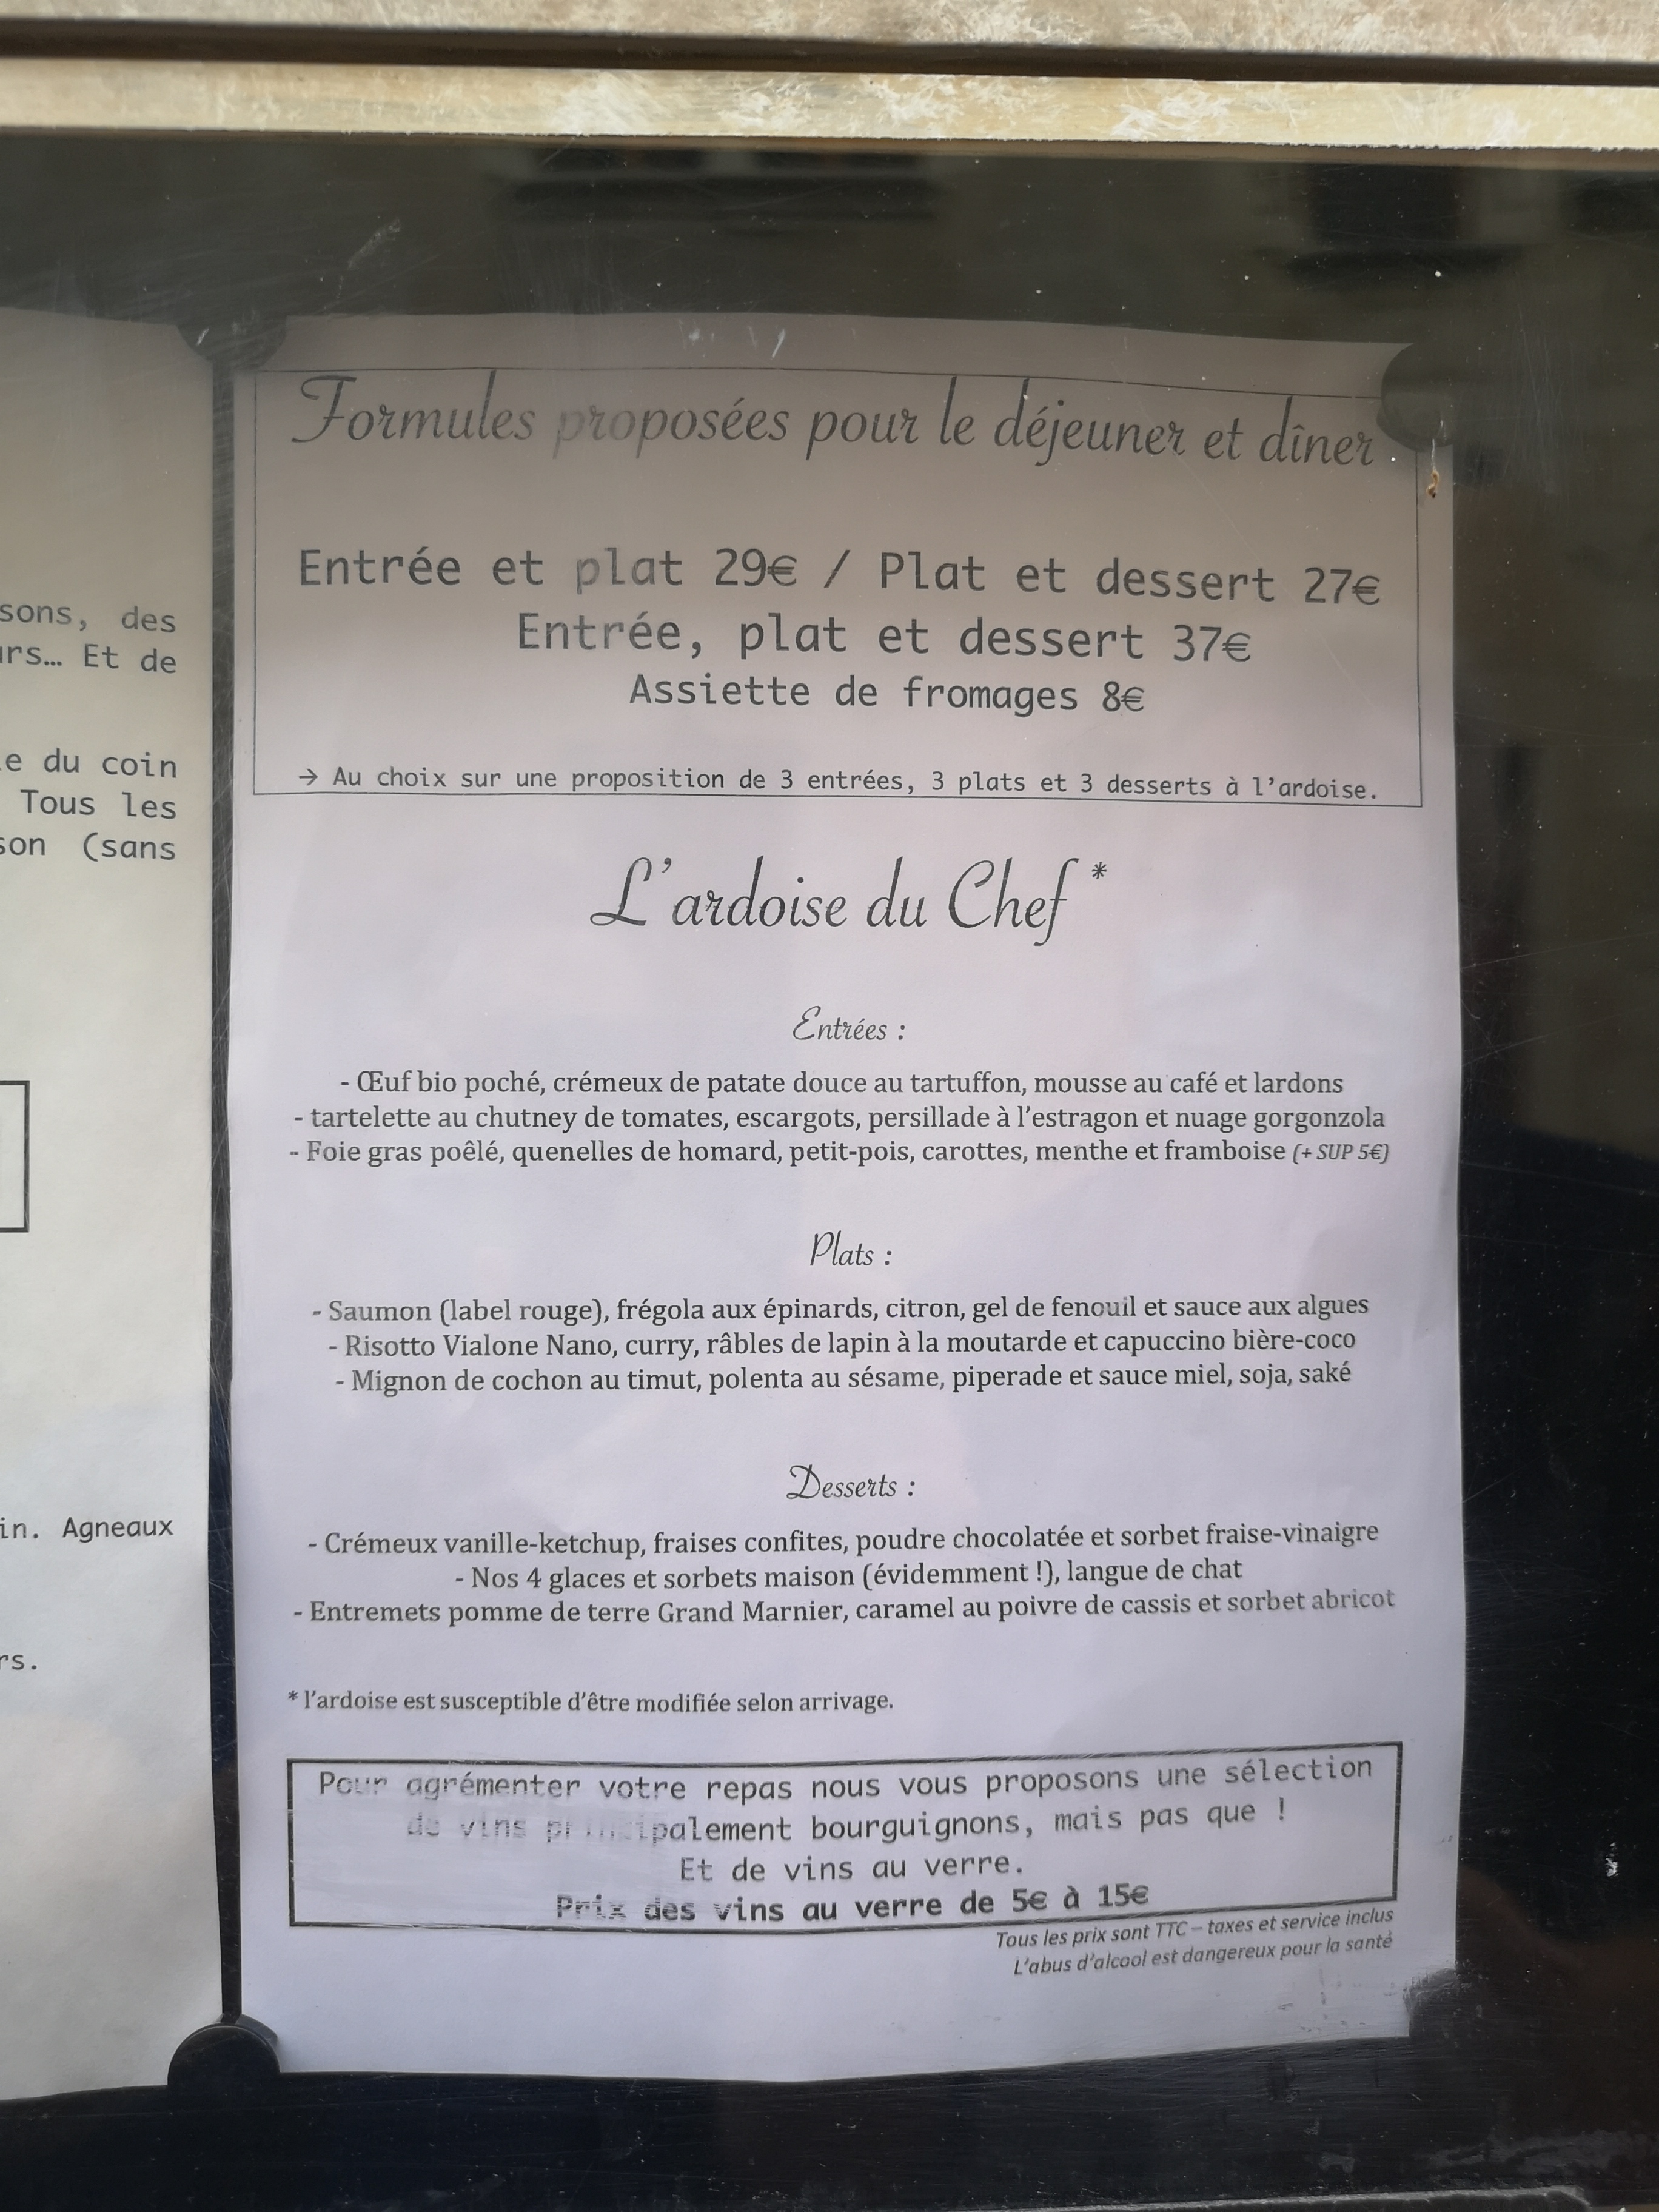 sons, des
urs… Et de
le du coin
Tous les
son (sans
in. Agneaux
rs.
Formules proposées pour le déjeuner et dîner
Entrée et plat 29€ / Plat et dessert 27€
Entrée, plat et dessert 37€
Assiette de fromages 8€
→ Au choix sur une proposition de 3 entrées, 3 plats et 3 desserts à l'ardoise.
L'ardoise du Chef *
Entrées :
- Œuf bio poché, crémeux de patate douce au tartuffon, mousse au café et lardons
- tartelette au chutney de tomates, escargots, persillade à l'estragon et nuage gorgonzola
- Foie gras poêlé, quenelles de homard, petit-pois, carottes, menthe et framboise (+ SUP 5€)
Plats :
- Saumon (label rouge), frégola aux épinards, citron, gel de fenouil et sauce aux algues
- Risotto Vialone Nano, curry, râbles de lapin à la moutarde et capuccino bière-coco
- Mignon de cochon au timut, polenta au sésame, piperade et sauce miel, soja, saké
Desserts :
- Crémeux vanille-ketchup, fraises confites, poudre chocolatée et sorbet fraise-vinaigre
- Nos 4 glaces et sorbets maison (évidemment !), langue de chat
- Entremets pomme de terre Grand Marnier, caramel au poivre de cassis et sorbet abricot
* l'ardoise est susceptible d'être modifiée selon arrivage.
Pour agrémenter votre repas nous vous proposons une sélection
de vins principalement bourguignons, mais pas que !
Et de vins au verre.
Prix des vins au verre de 5€ à 15€
Tous les prix sont TTC – taxes et service inclus
L'abus d'alcool est dangereux pour la santé